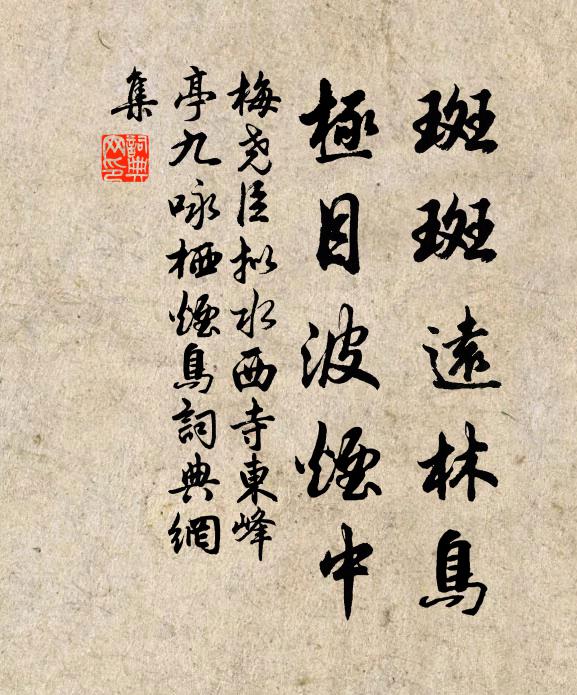 斑斑遠林鳥
極目波煙中
梅堯臣擬水西寺東峰
亭九咏栖煙鳥詞典網
集
詞典
网印